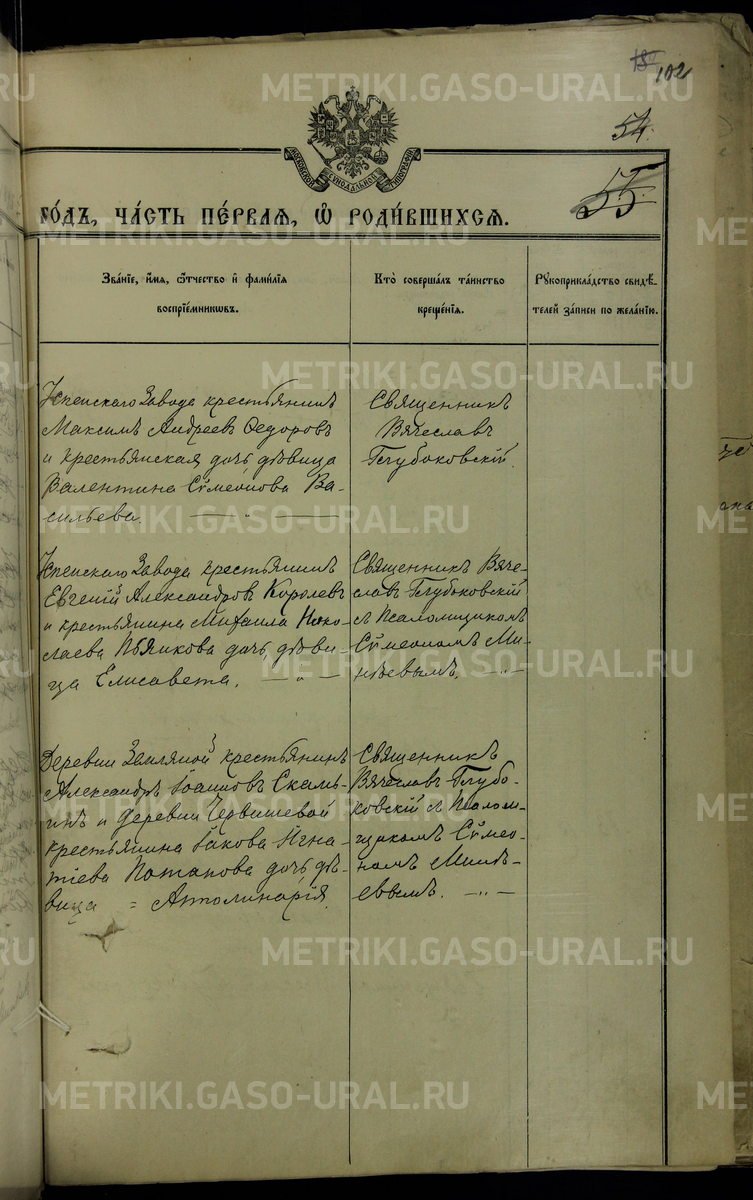 182 102
54.
55.
МОСКОВСКОЙ СѴНОДАЛЬНОЙ ТИПОГРАФІИ
ГО́ДЪ, ЧА́СТЬ ПЕ́РВАѦ, Ѽ РОДИ́ВШИХСѦ.
Зва́нїе, и́мѧ, ѻ҆́тчество и҆ фами́лїѧ
воспрїе́мникѡвъ.
Кто̀ соверша́лъ та́инство
креще́нїѧ.
Рꙋкоприкла́дство свидѣ́-
телей за́писи по жела́нїю.
Успенскаго Завода крестьянинъ
Максимъ Андреевъ Ѳедоровъ
и крестьянская дочь, дѣвица
Валентина Сѵмеонова Ва-
сильева.
Священникъ
Вячеславъ
Глубоковскій.
Успенскаго Завода крестьянинъ
Евгеній Александровъ Королевъ
и крестьянина Михаила Нико-
лаева Пьянкова дочь, дѣви-
ца Елисавета. — „ —
Священникъ Вяче-
славъ Глубоковскій
съ Псаломщикомъ
Сѵмеономъ Ми-
нѣевымъ. — „ —
Деревни Земляной крестьянинъ
Александръ Іоанновъ Скамь-
инъ и деревни Червишевой
крестьянина Іакова Игна-
тіева Потапова дочь, дѣ-
вица = Апполинарія.
Священникъ
Вячеславъ Глубо-
ковскій съ Псалом-
щикомъ Сѵмео-
номъ Минѣ-
евымъ. — „ —
METRIKI.GASO-URAL.RU